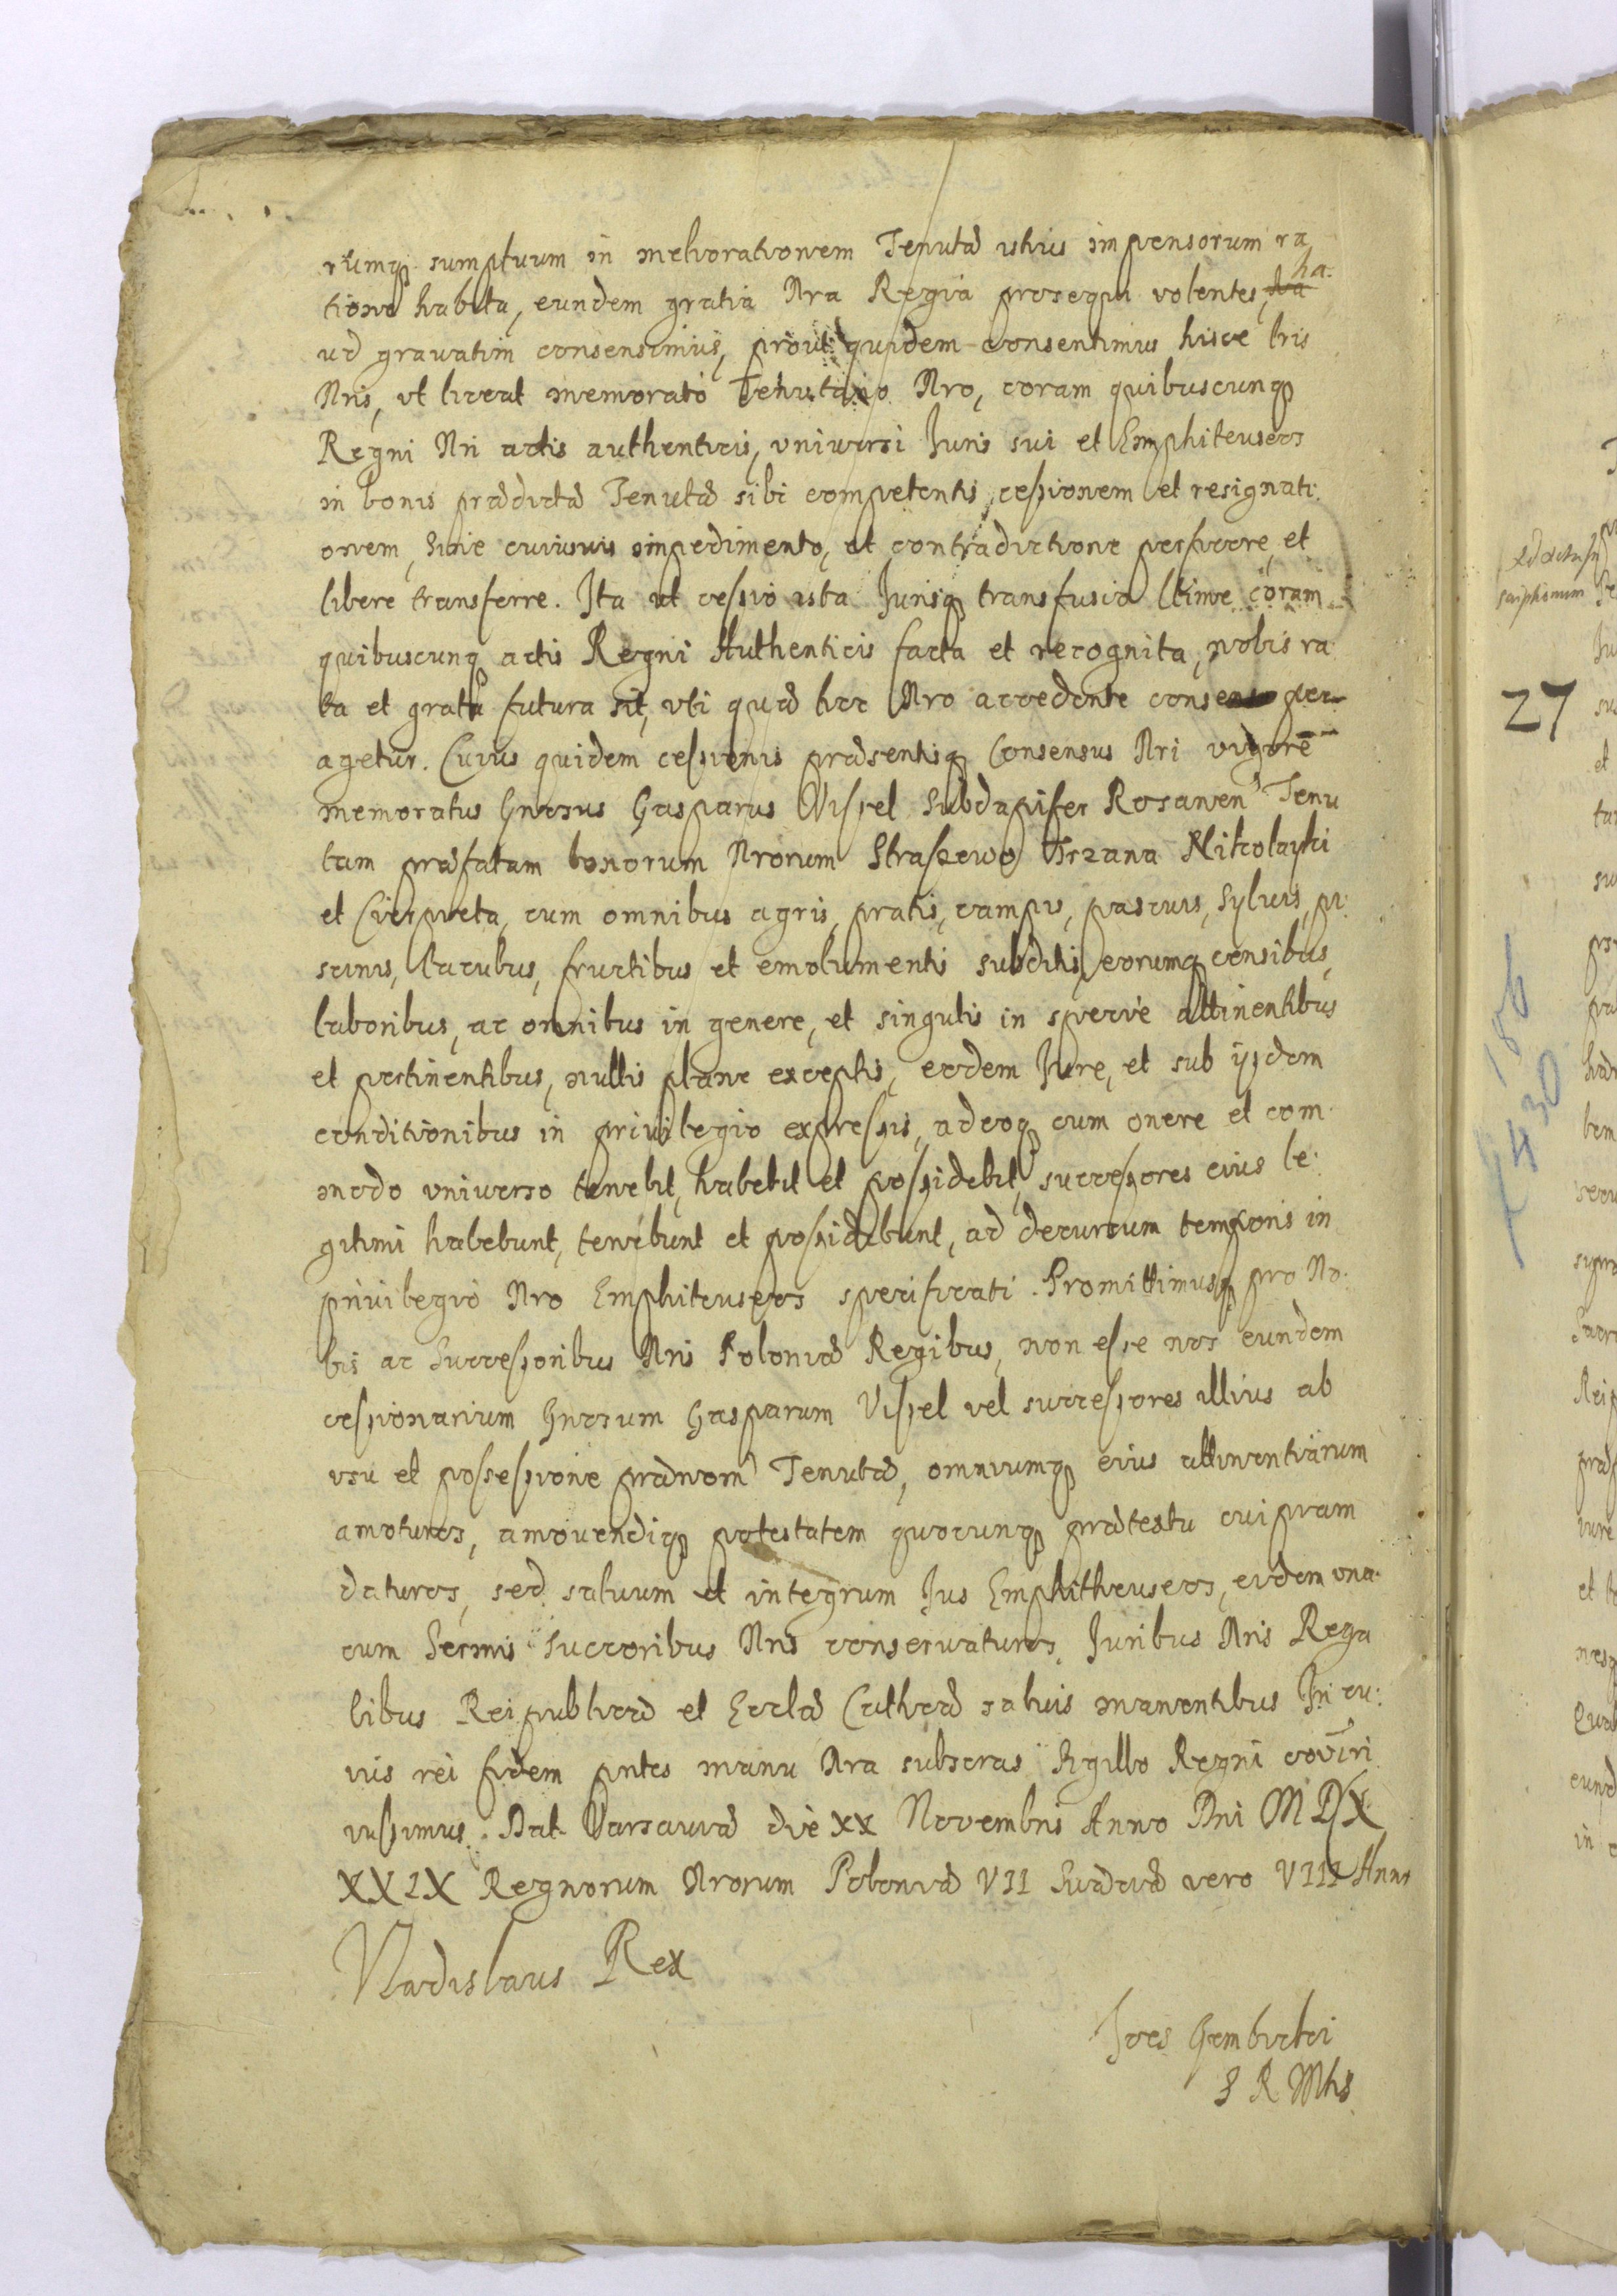 rumq sumptuum in meliorationem Tenutæ istius impensorum ra
tione habita, eundem gratia Nra Regia prosequi volentes, ha:
ud gravatim consensimus, prout quidem consentimus hisce lris
Nris, vt liceat memorato Tenutario Nro, coram quibuscunq
Regni Nri actis authenticis, vniversi Juris sui et Emphiteuseos
in bonis prædictæ Tenutæ sibi competentis, cessionem et resignati:
onem, sine cuiusuis impedimento, et contradictione perficere, et
libere transferre. Ita vt cessio ista Jurisq transfusio ltime coram
quibuscunq actis Regni Authenticis facta et recognita, nobis ra
ta et grata futura sit, vti quæ hoc Nro accedente consensu per
agetur. Cuius quidem cessionis præsentisq Consensus Nri vigore
memoratus Gnosus Gasparus Vissel Subdapifer Rosanen Tenu
tam præfatam bonorum Nrorum Straszewo Trzana Mikolayki
et Cierpieta, cum omnibus agris, pratis, campis, pascuis, syluis, pi:
scinis, lacubus, fructibus et emolumentis subditis, eorumq censibus,
laboribus, ac omnibus in genere, et singulis in specie attinentibus
et pertinentibus, nullis plane exceptis, eodem Jure, et sub ijsdem
conditionibus in priuilegio expressis, adeoq cum onere et com
modo vniuerso tenebit, habebit et possidebit, successores eius le:
gitimi habebunt, tenebunt et possidebunt, ad decursum temporis in
priuilegio Nro Emphiteuseos specificati. Promittimusq pro No:
bis ac Successoribus Nris Poloniæ Regibus, non esse nos eundem
cessionarium Gnosum Gasparum Vissel vel successores illius ab
vsu et possessione prænom Tenutæ, omniumq eius attinentiarum
amoturos, amovendiq potestatem quocunq prætextu cuipiam
daturos, sed saluum et integrum Jus Emphitheuseos, eidem vna
cum Sermis Succoribus Nris conseruaturos. Juribus Nris Rega
libus Reipublicæ et Ecclæ Catholicæ saluis manentibus In cu:
ius rei fidem pntes manu Nra subscras Sigillo Regni coṁri
iussimus. Dat Varsauiæ die XX Novembris Anno Dni MDCX
XXIX Regnorum Nrorum Poloniæ VII Suæciæ vero VIII Anno
Vladislaus Rex
Joes Gembicki
S R Mtis
27